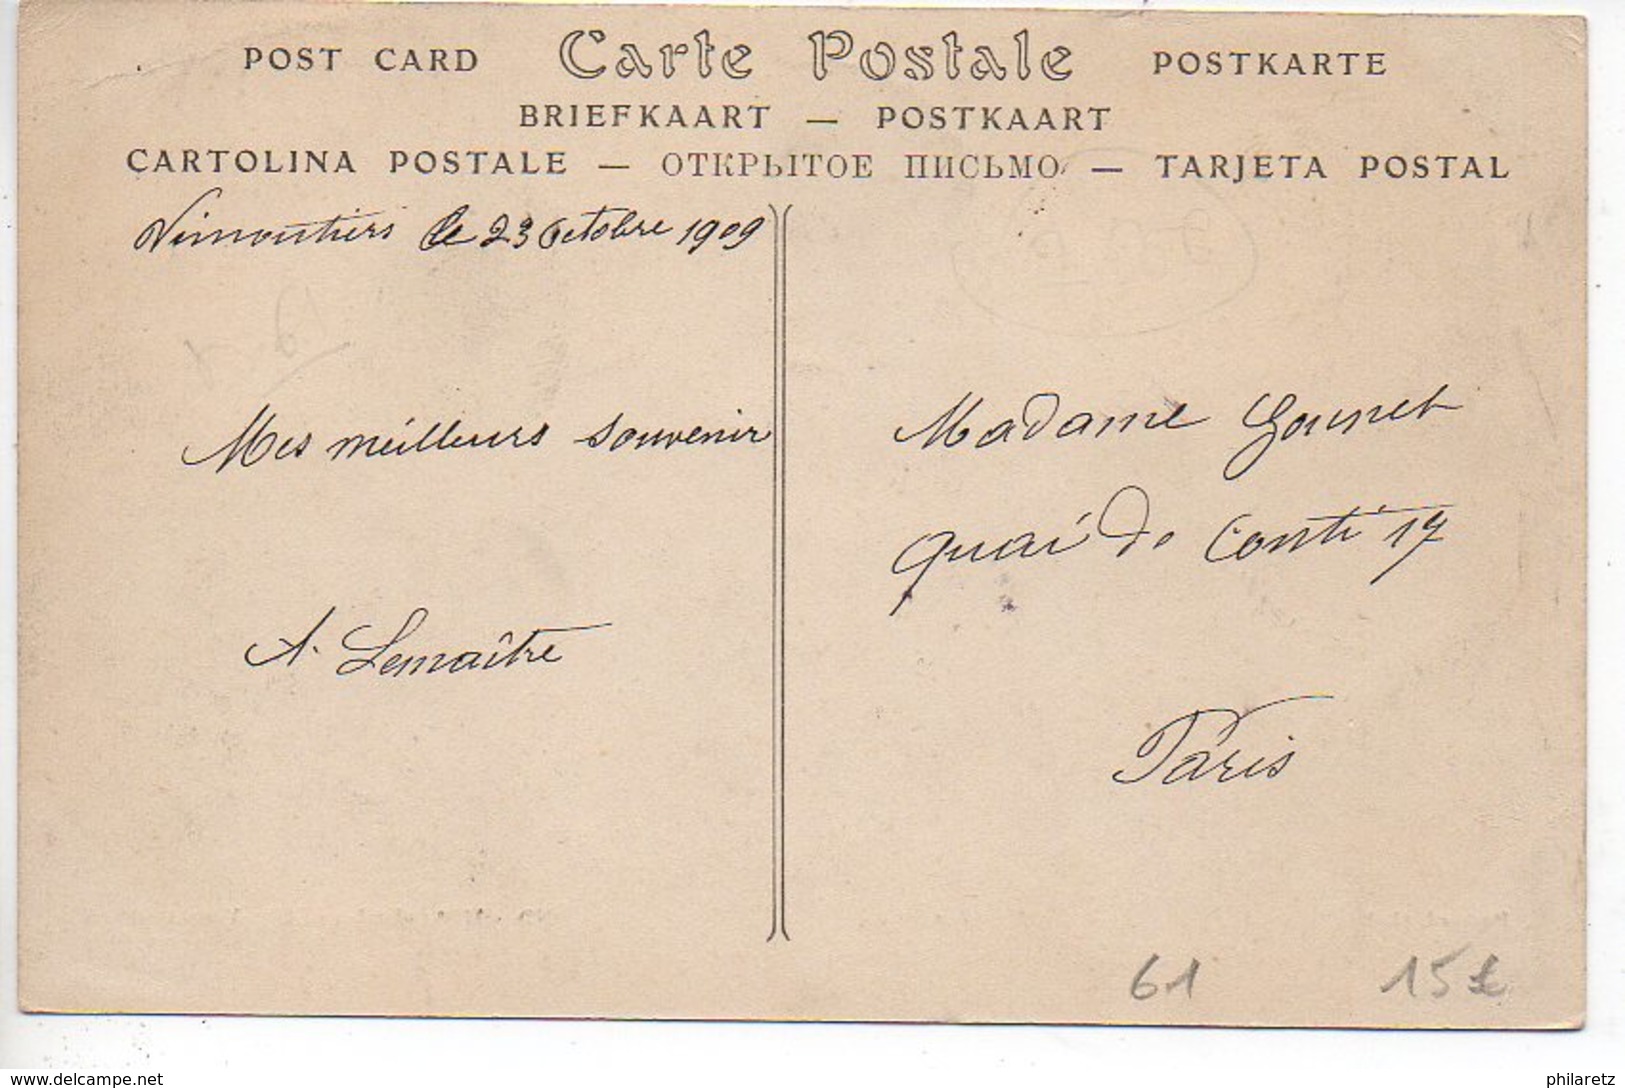 POST CARD Carte Postale POSTKARTE
BRIEFKAART — POSTKAART
CARTOLINA POSTALE — ОТКРЫТОЕ ПИСЬМО — TARJETA POSTAL
Vimoutiers le 23 Octobre 1909
Mes meilleurs souvenir
A. Lemaître
Madame Gounet
Quai de Conti 17
Paris
61 15€
www.delcampe.net philaretz